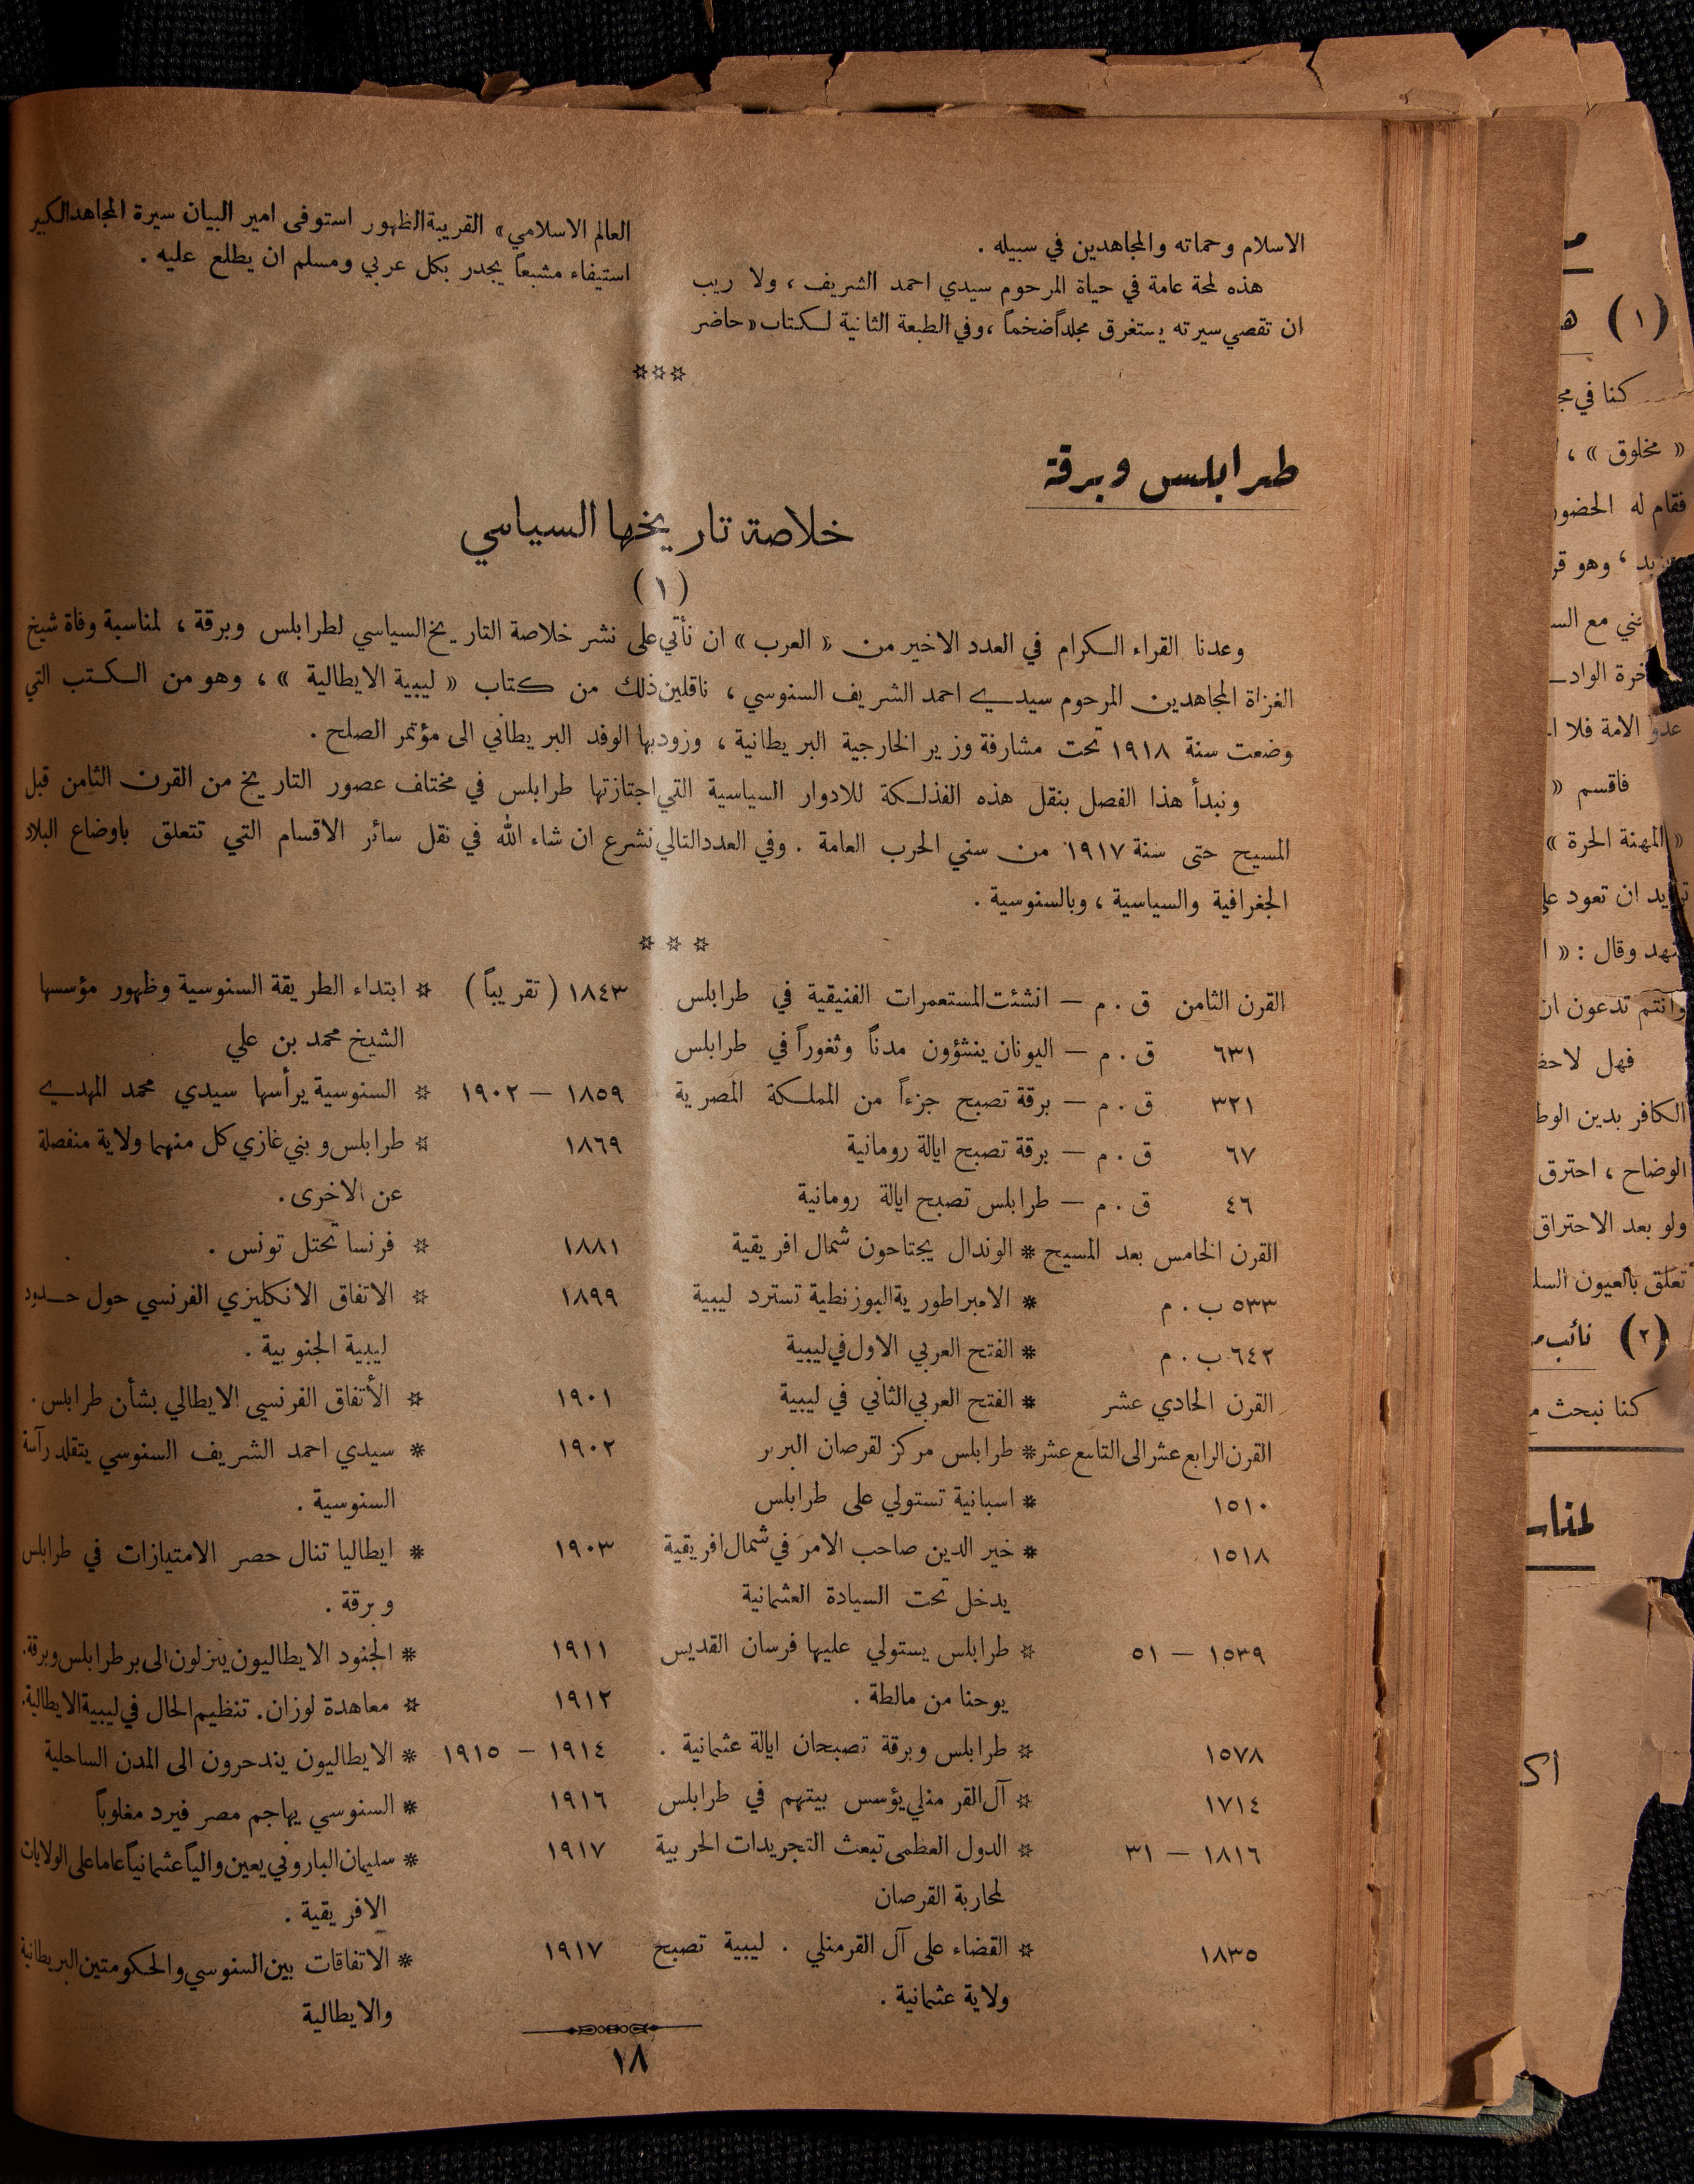 الاسلام وحماته والمجاهدين في سبيله .
هذه لمحة عامة في حياة المرحوم سيدي احمد الشريف ، ولا ريب
ان تقصي سيرته يستغرق مجلداً ضخماً ، وفي الطبعة الثانية لكتاب « حاضر
العالم الاسلامي » القريبة الظهور استوفى امير البيان سيرة المجاهد الكبير
استيفاء مشبعاً يجدر بكل عربي ومسلم ان يطلع عليه .
***
طرابلس وبرقة
خلاصة تاريخها السياسي
( ١ )
وعدنا القراء الكرام في العدد الاخير من « العرب » ان نأتي على نشر خلاصة التاريخ السياسي لطرابلس وبرقة ، لمناسبة وفاة شيخ
الغزاة المجاهدين المرحوم سيدي احمد الشريف السنوسي ، ناقلين ذلك من كتاب « ليبية الايطالية » ، وهو من الكتب التي
وضعت سنة ١٩١٨ تحت مشارفة وزير الخارجية البريطانية ، وزود بها الوفد البريطاني الى مؤتمر الصلح .
ونبدأ هذا الفصل بنقل هذه الفذلكة للادوار السياسية التي اجتازتها طرابلس في مختلف عصور التاريخ من القرن الثامن قبل
المسيح حتى سنة ١٩١٧ من سني الحرب العامة . وفي العدد التالي نشرع ان شاء الله في نقل سائر الاقسام التي تتعلق باوضاع البلاد
الجغرافية والسياسية ، وبالسنوسية .
* * *
القرن الثامن ق . م — انشئت المستعمرات الفنيقية في طرابلس
٦٣١ ق . م — اليونان ينشؤون مدناً وثغوراً في طرابلس
٣٢١ ق . م — برقة تصبح جزءاً من المملكة المصرية
٦٧ ق . م — برقة تصبح ايالة رومانية
٤٦ ق . م — طرابلس تصبح ايالة رومانية
القرن الخامس بعد المسيح * الوندال يجتاحون شمال افريقية
٥٣٣ ب . م * الامبراطورية البوزنطية تسترد ليبية
٦٤٢ ب . م * الفتح العربي الاول في ليبية
القرن الحادي عشر * الفتح العربي الثاني في ليبية
القرن الرابع عشر الى التاسع عشر * طرابلس مركز لقرصان البربر
١٥١٠ * اسبانية تستولي على طرابلس
١٥١٨ * خير الدين صاحب الامر في شمال افريقية
يدخل تحت السيادة العثمانية
١٥٣٩ — ٥١ * طرابلس يستولي عليها فرسان القديس
يوحنا من مالطة .
١٥٧٨ * طرابلس وبرقة تصبحان ايالة عثمانية .
١٧١٤ * آل القرمنلي يؤسس بيتهم في طرابلس
١٨١٦ — ٣١ * الدول العظمى تبعث التجريدات الحربية
لمحاربة القرصان
١٨٣٥ * القضاء على آل القرمنلي . ليبية تصبح
ولاية عثمانية .
١٨٤٣ ( تقريباً ) * ابتداء الطريقة السنوسية وظهور مؤسسها
الشيخ محمد بن علي
١٨٥٩ — ١٩٠٢ * السنوسية يرأسها سيدي محمد المهدي
١٨٦٩ * طرابلس وبني غازي كل منهما ولاية منفصلة
عن الاخرى .
١٨٨١ * فرنسا تحتل تونس .
١٨٩٩ * الاتفاق الانكليزي الفرنسي حول حدود
ليبية الجنوبية .
١٩٠١ * الأتفاق الفرنسي الايطالي بشأن طرابلس .
١٩٠٢ * سيدي احمد الشريف السنوسي يتقلد رآسة
السنوسية .
١٩٠٣ * ايطاليا تنال حصر الامتيازات في طرابلس
وبرقة .
١٩١١ * الجنود الايطاليون ينزلون الى بر طرابلس وبرقة .
١٩١٢ * معاهدة لوزان . تنظيم الحال في ليبية الايطالية .
١٩١٤ — ١٩١٥ * الايطاليون يندحرون الى المدن الساحلية
١٩١٦ * السنوسي يهاجم مصر فيرد مغلوباً
١٩١٧ * سليمان الباروني يعين والياً عثمانياً عاما على الولايات
الافريقية .
١٩١٧ * الاتفاقات بين السنوسي والحكومتين البريطانية
والايطالية
١٨
( ١ )
كنا في
« مخلوق » ،
فقام له الحضور
وهو
مع
عدو الامة فلا
فاقسم «
« المهنة الحرة »
ان تعود
وقال : «
وانتم تدعون ان
فهل
الكافر بدين
الوضاح ، احترق
ولو بعد الاحتراق
تعلق بالعيون
( ٢ ) نائب
كنا نبحث